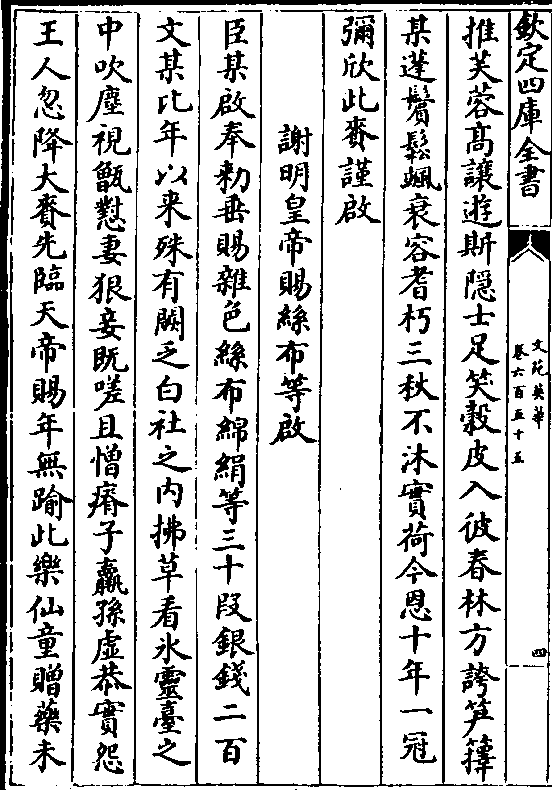 欽定四庫全書
文苑英華
卷六百五十五
四
推芙蓉髙讓遊斯隠士足笑榖皮入彼春林方誇笋籜
某蓬鬢鬆颯衰容耆朽三秋不沐實荷今恩十年一冠
彌欣此賚謹啟
謝明皇帝賜絲布等啟
臣某啟奉勅垂賜雜色絲布綿絹等三十段銀錢二百
文某比年以来殊有闕乏白社之内拂草看氷靈臺之
中吹塵視甑懟妻狠妾既嗟且憎瘠子羸孫虚恭實怨
王人忽降大賚先臨天帝賜年無踰此樂仙童贈藥未